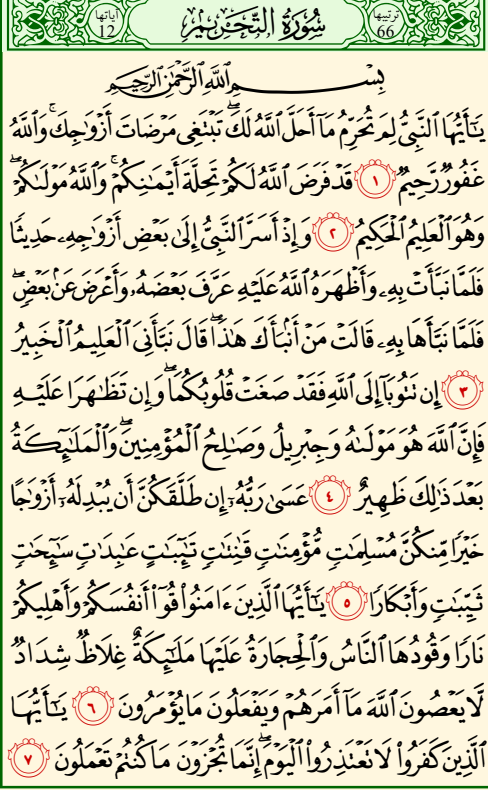 آياتها
12
سُورَةُ التَّحْرِيمِ
ترتيبها
66
بِسْمِ ٱللَّهِ ٱلرَّحْمَٰنِ ٱلرَّحِيمِ
يَٰٓأَيُّهَا ٱلنَّبِىُّ لِمَ تُحَرِّمُ مَآ أَحَلَّ ٱللَّهُ لَكَ ۖ تَبْتَغِى مَرْضَاتَ أَزْوَٰجِكَ ۚ وَٱللَّهُ
غَفُورٌ رَّحِيمٌ ١ قَدْ فَرَضَ ٱللَّهُ لَكُمْ تَحِلَّةَ أَيْمَٰنِكُمْ ۚ وَٱللَّهُ مَوْلَىٰكُمْ ۖ
وَهُوَ ٱلْعَلِيمُ ٱلْحَكِيمُ ٢ وَإِذْ أَسَرَّ ٱلنَّبِىُّ إِلَىٰ بَعْضِ أَزْوَٰجِهِۦ حَدِيثًا
فَلَمَّا نَبَّأَتْ بِهِۦ وَأَظْهَرَهُ ٱللَّهُ عَلَيْهِ عَرَّفَ بَعْضَهُۥ وَأَعْرَضَ عَنۢ بَعْضٍ ۖ
فَلَمَّا نَبَّأَهَا بِهِۦ قَالَتْ مَنْ أَنۢبَأَكَ هَٰذَا ۖ قَالَ نَبَّأَنِىَ ٱلْعَلِيمُ ٱلْخَبِيرُ
٣ إِن تَتُوبَآ إِلَى ٱللَّهِ فَقَدْ صَغَتْ قُلُوبُكُمَا ۖ وَإِن تَظَٰهَرَا عَلَيْهِ
فَإِنَّ ٱللَّهَ هُوَ مَوْلَىٰهُ وَجِبْرِيلُ وَصَٰلِحُ ٱلْمُؤْمِنِينَ ۖ وَٱلْمَلَٰٓئِكَةُ
بَعْدَ ذَٰلِكَ ظَهِيرٌ ٤ عَسَىٰ رَبُّهُۥٓ إِن طَلَّقَكُنَّ أَن يُبْدِلَهُۥٓ أَزْوَٰجًا
خَيْرًا مِّنكُنَّ مُسْلِمَٰتٍ مُّؤْمِنَٰتٍ قَٰنِتَٰتٍ تَٰٓئِبَٰتٍ عَٰبِدَٰتٍ سَٰٓئِحَٰتٍ
ثَيِّبَٰتٍ وَأَبْكَارًا ٥ يَٰٓأَيُّهَا ٱلَّذِينَ ءَامَنُوا۟ قُوٓا۟ أَنفُسَكُمْ وَأَهْلِيكُمْ
نَارًا وَقُودُهَا ٱلنَّاسُ وَٱلْحِجَارَةُ عَلَيْهَا مَلَٰٓئِكَةٌ غِلَاظٌ شِدَادٌ
لَّا يَعْصُونَ ٱللَّهَ مَآ أَمَرَهُمْ وَيَفْعَلُونَ مَا يُؤْمَرُونَ ٦ يَٰٓأَيُّهَا
ٱلَّذِينَ كَفَرُوا۟ لَا تَعْتَذِرُوا۟ ٱلْيَوْمَ ۖ إِنَّمَا تُجْزَوْنَ مَا كُنتُمْ تَعْمَلُونَ ٧